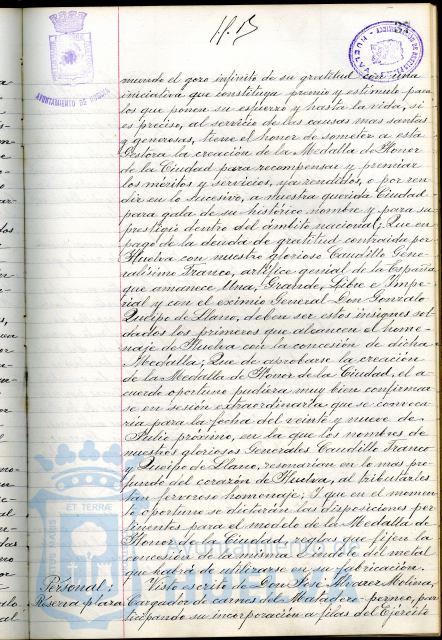 AYUNTAMIENTO DE HUELVA
mundo el gozo infinito de su gratitud con una
iniciativa que constituya premio y estímulo para
los que ponen su esfuerzo y hasta la vida, si
es preciso, al servicio de las causas mas santas
y generosas, tiene el honor de someter a esta
Gestora la creación de la Medalla de Honor
de la Ciudad para recompensar y premiar
los méritos y servicios, ya rendidos, o por ren-
dir en lo sucesivo, a nuestra querida Ciudad
para gala de su histórico nombre y para su
prestigio dentro del ámbito nacional; Que en
pago de la deuda de gratitud contraida por
Huelva con nuestro glorioso Caudillo Gene-
ralísimo Franco, artífice genial de la España
que amanece Una, Grande, Libre e Impe-
rial y con el eximio General Don Gonzalo
Queipo de Llano, deben ser estos insignes sol-
dados los primeros que alcancen el home-
naje de Huelva con la concesión de dicha
Medalla; Que de aprobarse la creación
de la Medalla de Honor de la Ciudad, el a-
cuerdo oportuno pudiera muy bien confirmar
se en sesión extraordinaria que se convoca-
ria para la fecha del veinte y nueve de
Julio próximo, en la que los nombres de
nuestros gloriosos Generales Caudillo Franco
y Queipo de Llano, resonarian en lo mas pro-
fundo del corazón de Huelva, al tributarles
tan fervoroso homenaje; Y que en el momen-
to oportuno se dictarán las disposiciones per-
tinentes para el modelo de la Medalla de
Honor de la Ciudad, reglas que fijen la
concesión de la misma e indole del metal
que habrá de utilizarse en su fabricación.
Personal: Visto escrito de Don José Alvarez Molina,
Reserva plaza Cargador de carnes del Matadero perneo, par-
ticipando su incorporación a filas del Ejército
ET TERRÆ